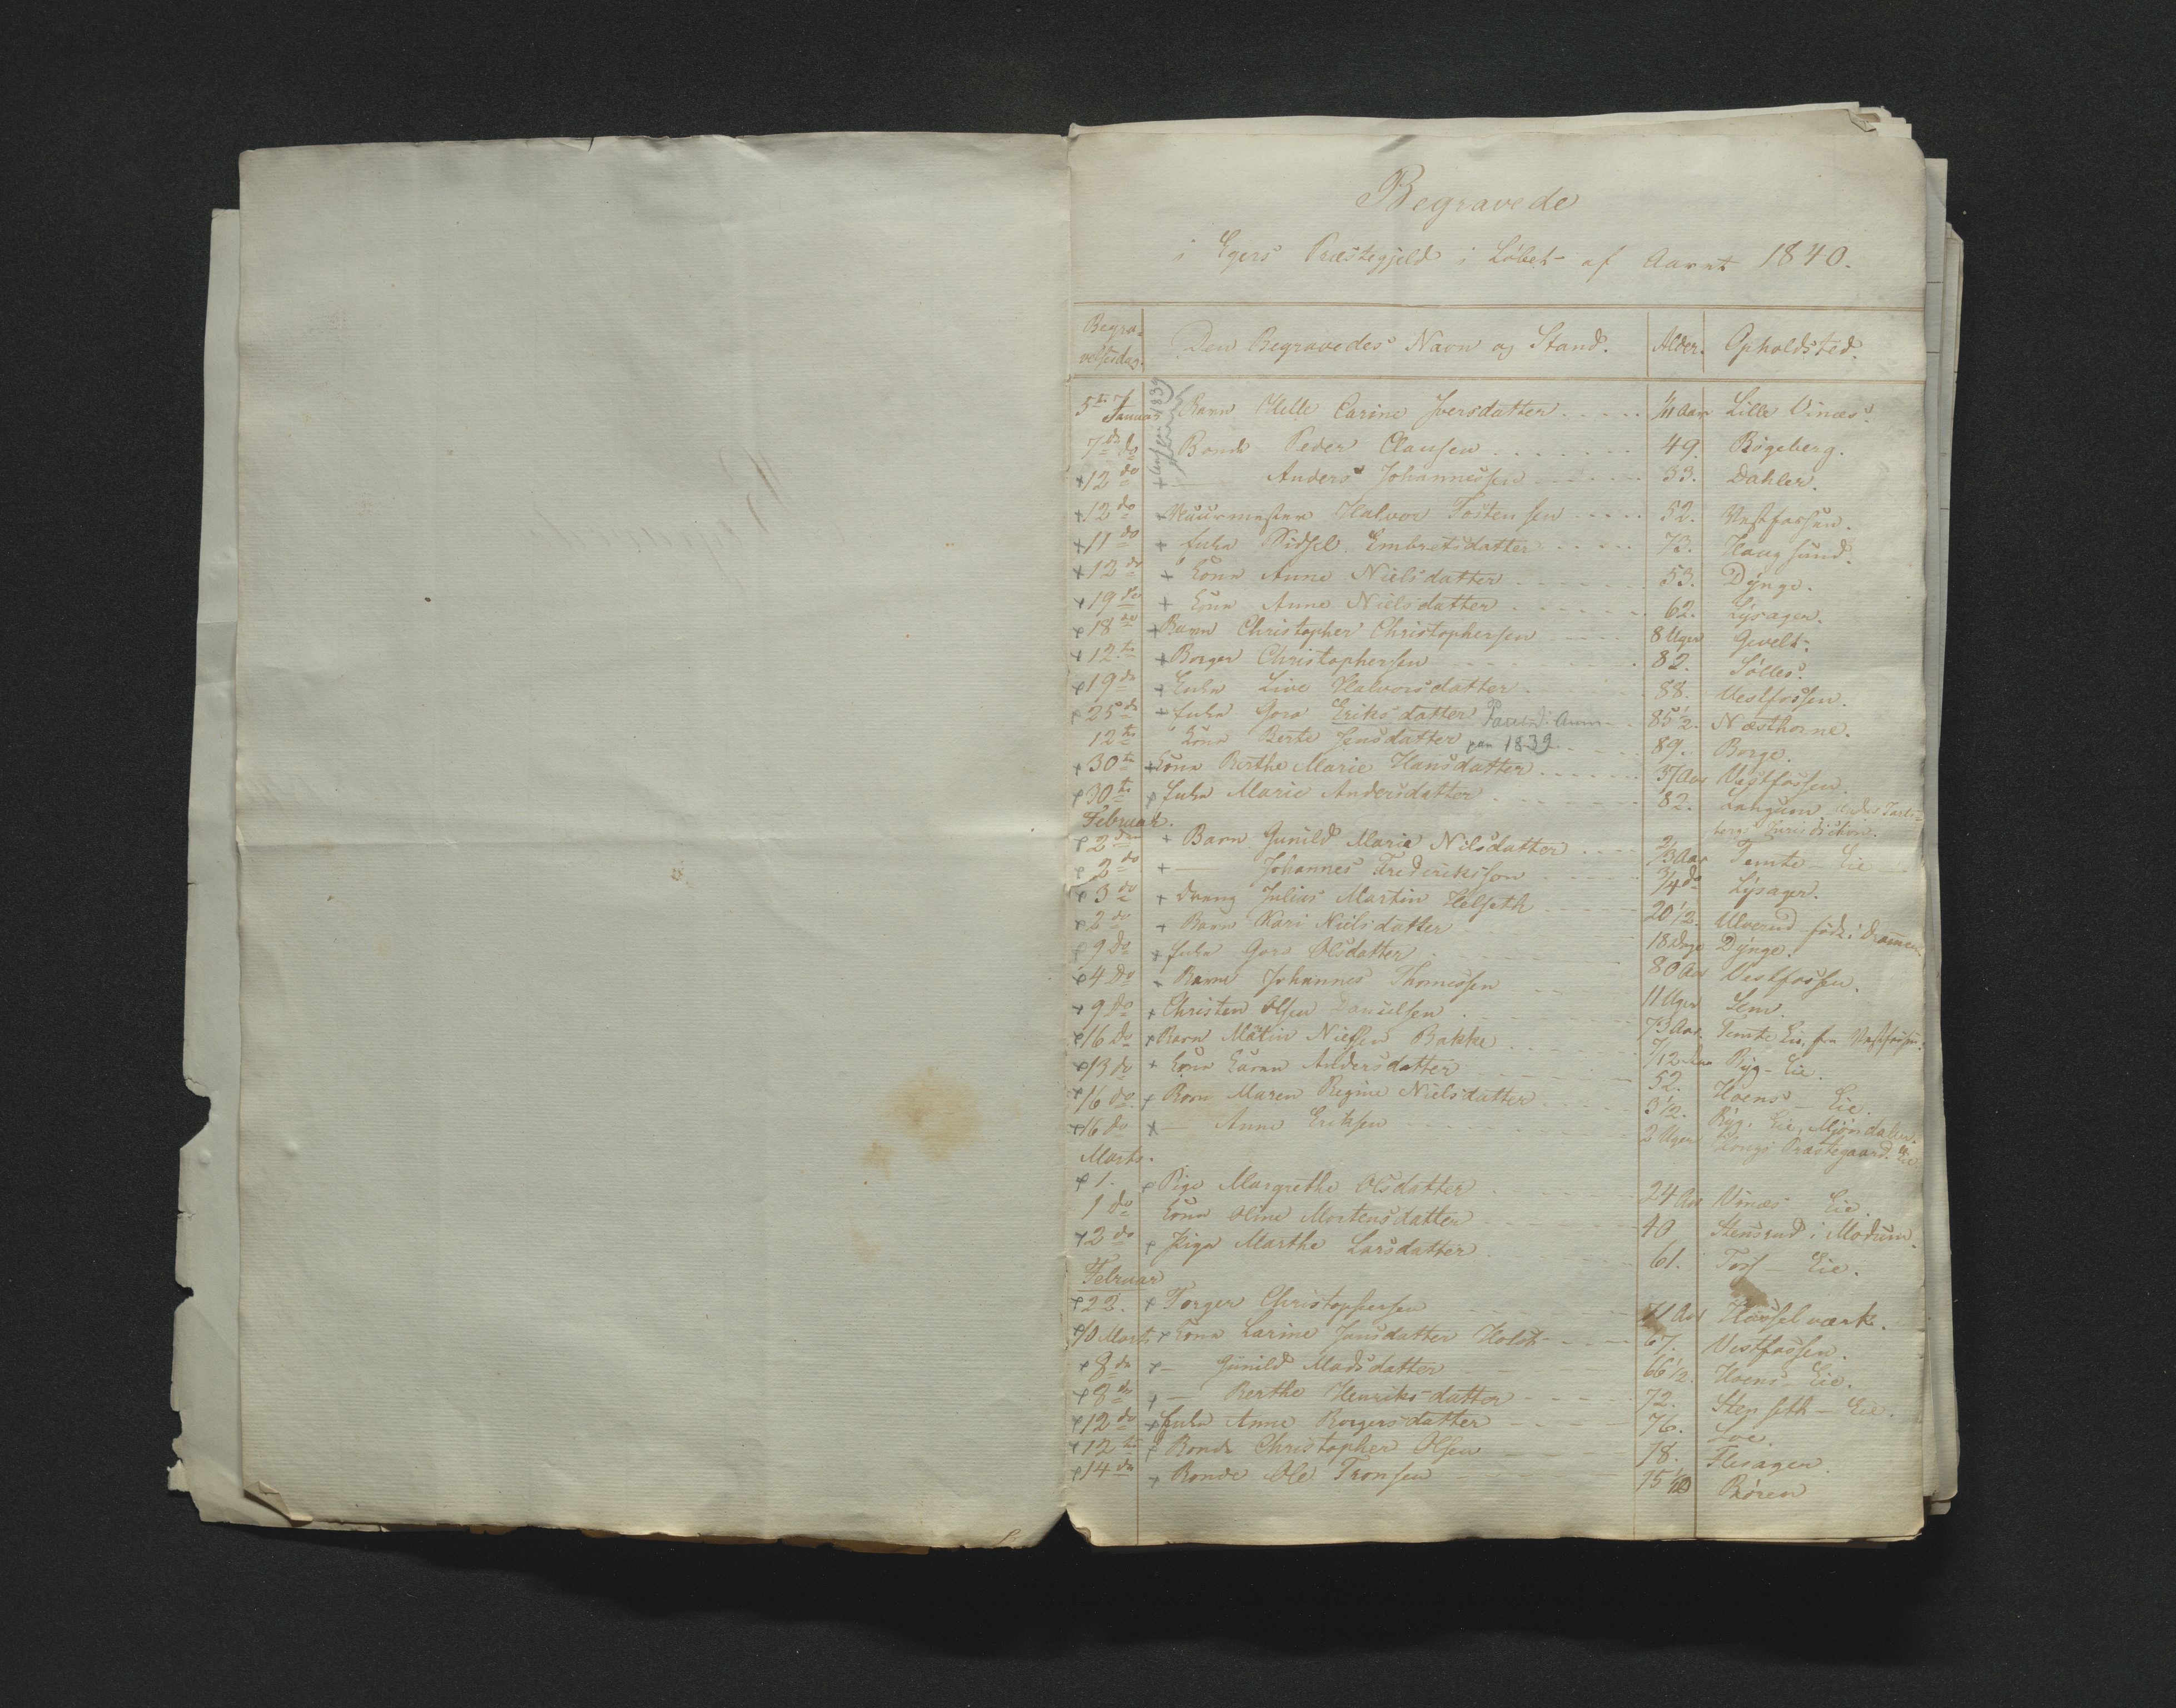 Begravede
i Egers Præstegjeld i Løbet af Aaret 1840.
Begra-
velsesdag. Den Begravedes Navn og Stand. Alder. Opholdsted.
5te Januar Barn Helle Carine Iversdatter Aar Lille Vinæs.
7de do Bonde Peder Clausen 49. Bøgeberg.
1839
+12 do + — Anders Johannessen 33. Dahler.
+12 do Muurmester Halvor Tostensen 52. Vestfossen.
+11 do + Enke Sidsel Embretsdatter 73. Haugsund.
+12 do + Kone Anne Nielsdatter 53. Dynge.
+19 do + Kone Anne Nielsdatter 62. Lysager.
+18 do + Barn Christopher Christophersen 8 Uger Gevelt.
+12te + Borger Christophersen 82. Sølles.
+19de + Enke Live Halvorsdatter 88. Vestfossen.
+25de + Enke Goro Eriksdatter 85 1/2. Næsthorne.
12te Kone Berte Jensdatter 1839 89. Borge.
+30te + Kone Berthe Marie Hansdatter 37 Aar Vestfossen.
+30te + Enke Marie Andersdatter 82. Langum under Jarls-
Februar. bergs Jurisdiction.
+2de + Barn Gunild Marie Nilsdatter 2/3 Aar Temte Eie
+2 do + — Johannes Frederiksson 3/4 do Lysager.
+3 do + Dreng Julius Martin Helseth 20 1/2. Ulverud født i Drammen
+2 do + Barn Kari Nielsdatter 18 Dage Dynge.
+9 do + Enke Goro Olsdatter 80 Aar Vestfossen.
+4 do + Barn Johannes Thomessen 11 Uger Lem.
+9 do + Christen Olsen Danielsen 73 Aar Temte Eie, fra Vestfossen.
+16 do + Barn Matin Nielsen Bakke 7/12 Aar Ryg-Eie.
+13 do + Kone Karen Andersdatter 52. Hoens — Eie.
+16 do + Barn Maren Regine Nielsdatter 3 1/2. Ryg. Eie, Mjøndalen.
+16 do + — Anne Eriksen 2 Uger Kongs Præstegaard. Eie
Marts.
+1. + Pige Margrethe Olsdatter 24 Aar Vinæs Eie.
1 do Kone Oline Mortensdatter 40 Stensrud i Modum.
+2 do + Pige Marthe Larsdatter 61. Tors — Eie.
Februar
+22. + Torger Christophersen 71 Aar Hassel værk.
+10 Marts + Kone Larine Jansdatter Holst 67. Vestfossen.
+8de + — Gunild Madsdatter 66 1/2. Hoens Eie.
+8de + — Berthe Henriksdatter 72. Stenseth — Eie.
+12 do + Enke Anne Borgersdatter 76. Loe.
+12te + Bonde Christopher Olsen 78. Flesager.
+14de + Bonde Ole Tronsen 75 Børen